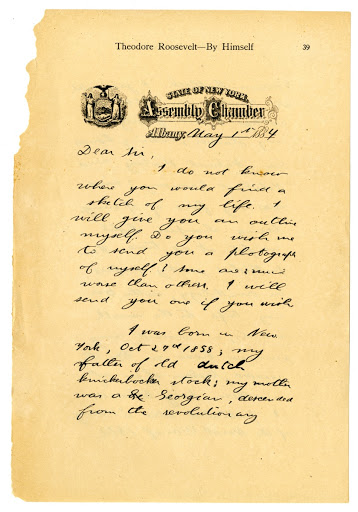 Theodore Roosevelt—By Himself 39
STATE OF NEW YORK.
Assembly Chamber
Albany, May 1st 1884
Dear Sir,
I do not know
where you would find a
sketch of my life. I
will give you an outline
myself. Do you wish me
to send you a photograph
of myself? Some are
worse than others. I will
send you one if you wish
I was born in New
York, Oct 27th 1858; my
father of old dutch
knickerbocker stock; my mother
was a Georgian, descended
from the revolutionary